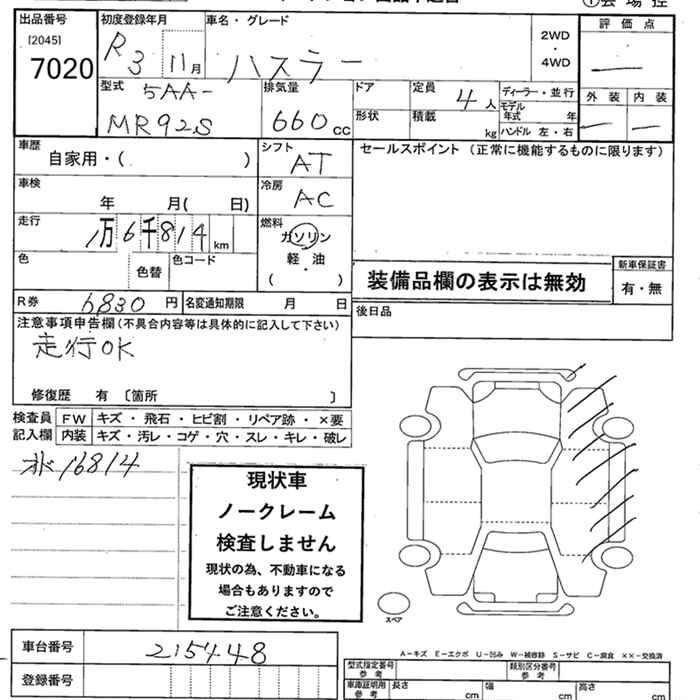 出品番号
[2045]
7020
初度登録年月
R3 11月
車名・グレード
ハスラー
2WD
・
4WD
①会場控
評価点
—
外装 内装
— —
型式
5AA-
MR92S
排気量
660cc
ドア
形状
定員
4人
積載
kg
ディーラー・並行
モデル年式 年
ハンドル 左・右
車歴
自家用・( )
シフト
AT
セールスポイント (正常に機能するものに限ります)
車検
年 月( 日)
冷房
AC
走行
1万6千814km
燃料
ガソリン
軽・油
( )
色
色替
色コード
装備品欄の表示は無効
新車保証書
有・無
R券 6830円
名変通知期限 月 日
後日品
注意事項申告欄(不具合内容等は具体的に記入して下さい)
走行OK
修復歴 有 〔箇所 〕
検査員 FW キズ・飛石・ヒビ割・リペア跡・×要
記入欄 内装 キズ・汚レ・コゲ・穴・スレ・キレ・破レ
オド16814
現状車
ノークレーム
検査しません
現状の為、不動車になる
場合もありますので
ご注意ください。
スペア
A-キズ E-エクボ U-凹み W-補修跡 S-サビ C-腐食 ××-交換済
車台番号
215448
登録番号
型式指定番号
参考
類別区分番号
参考
車庫証明用
参考
長さ cm
幅 cm
高さ cm